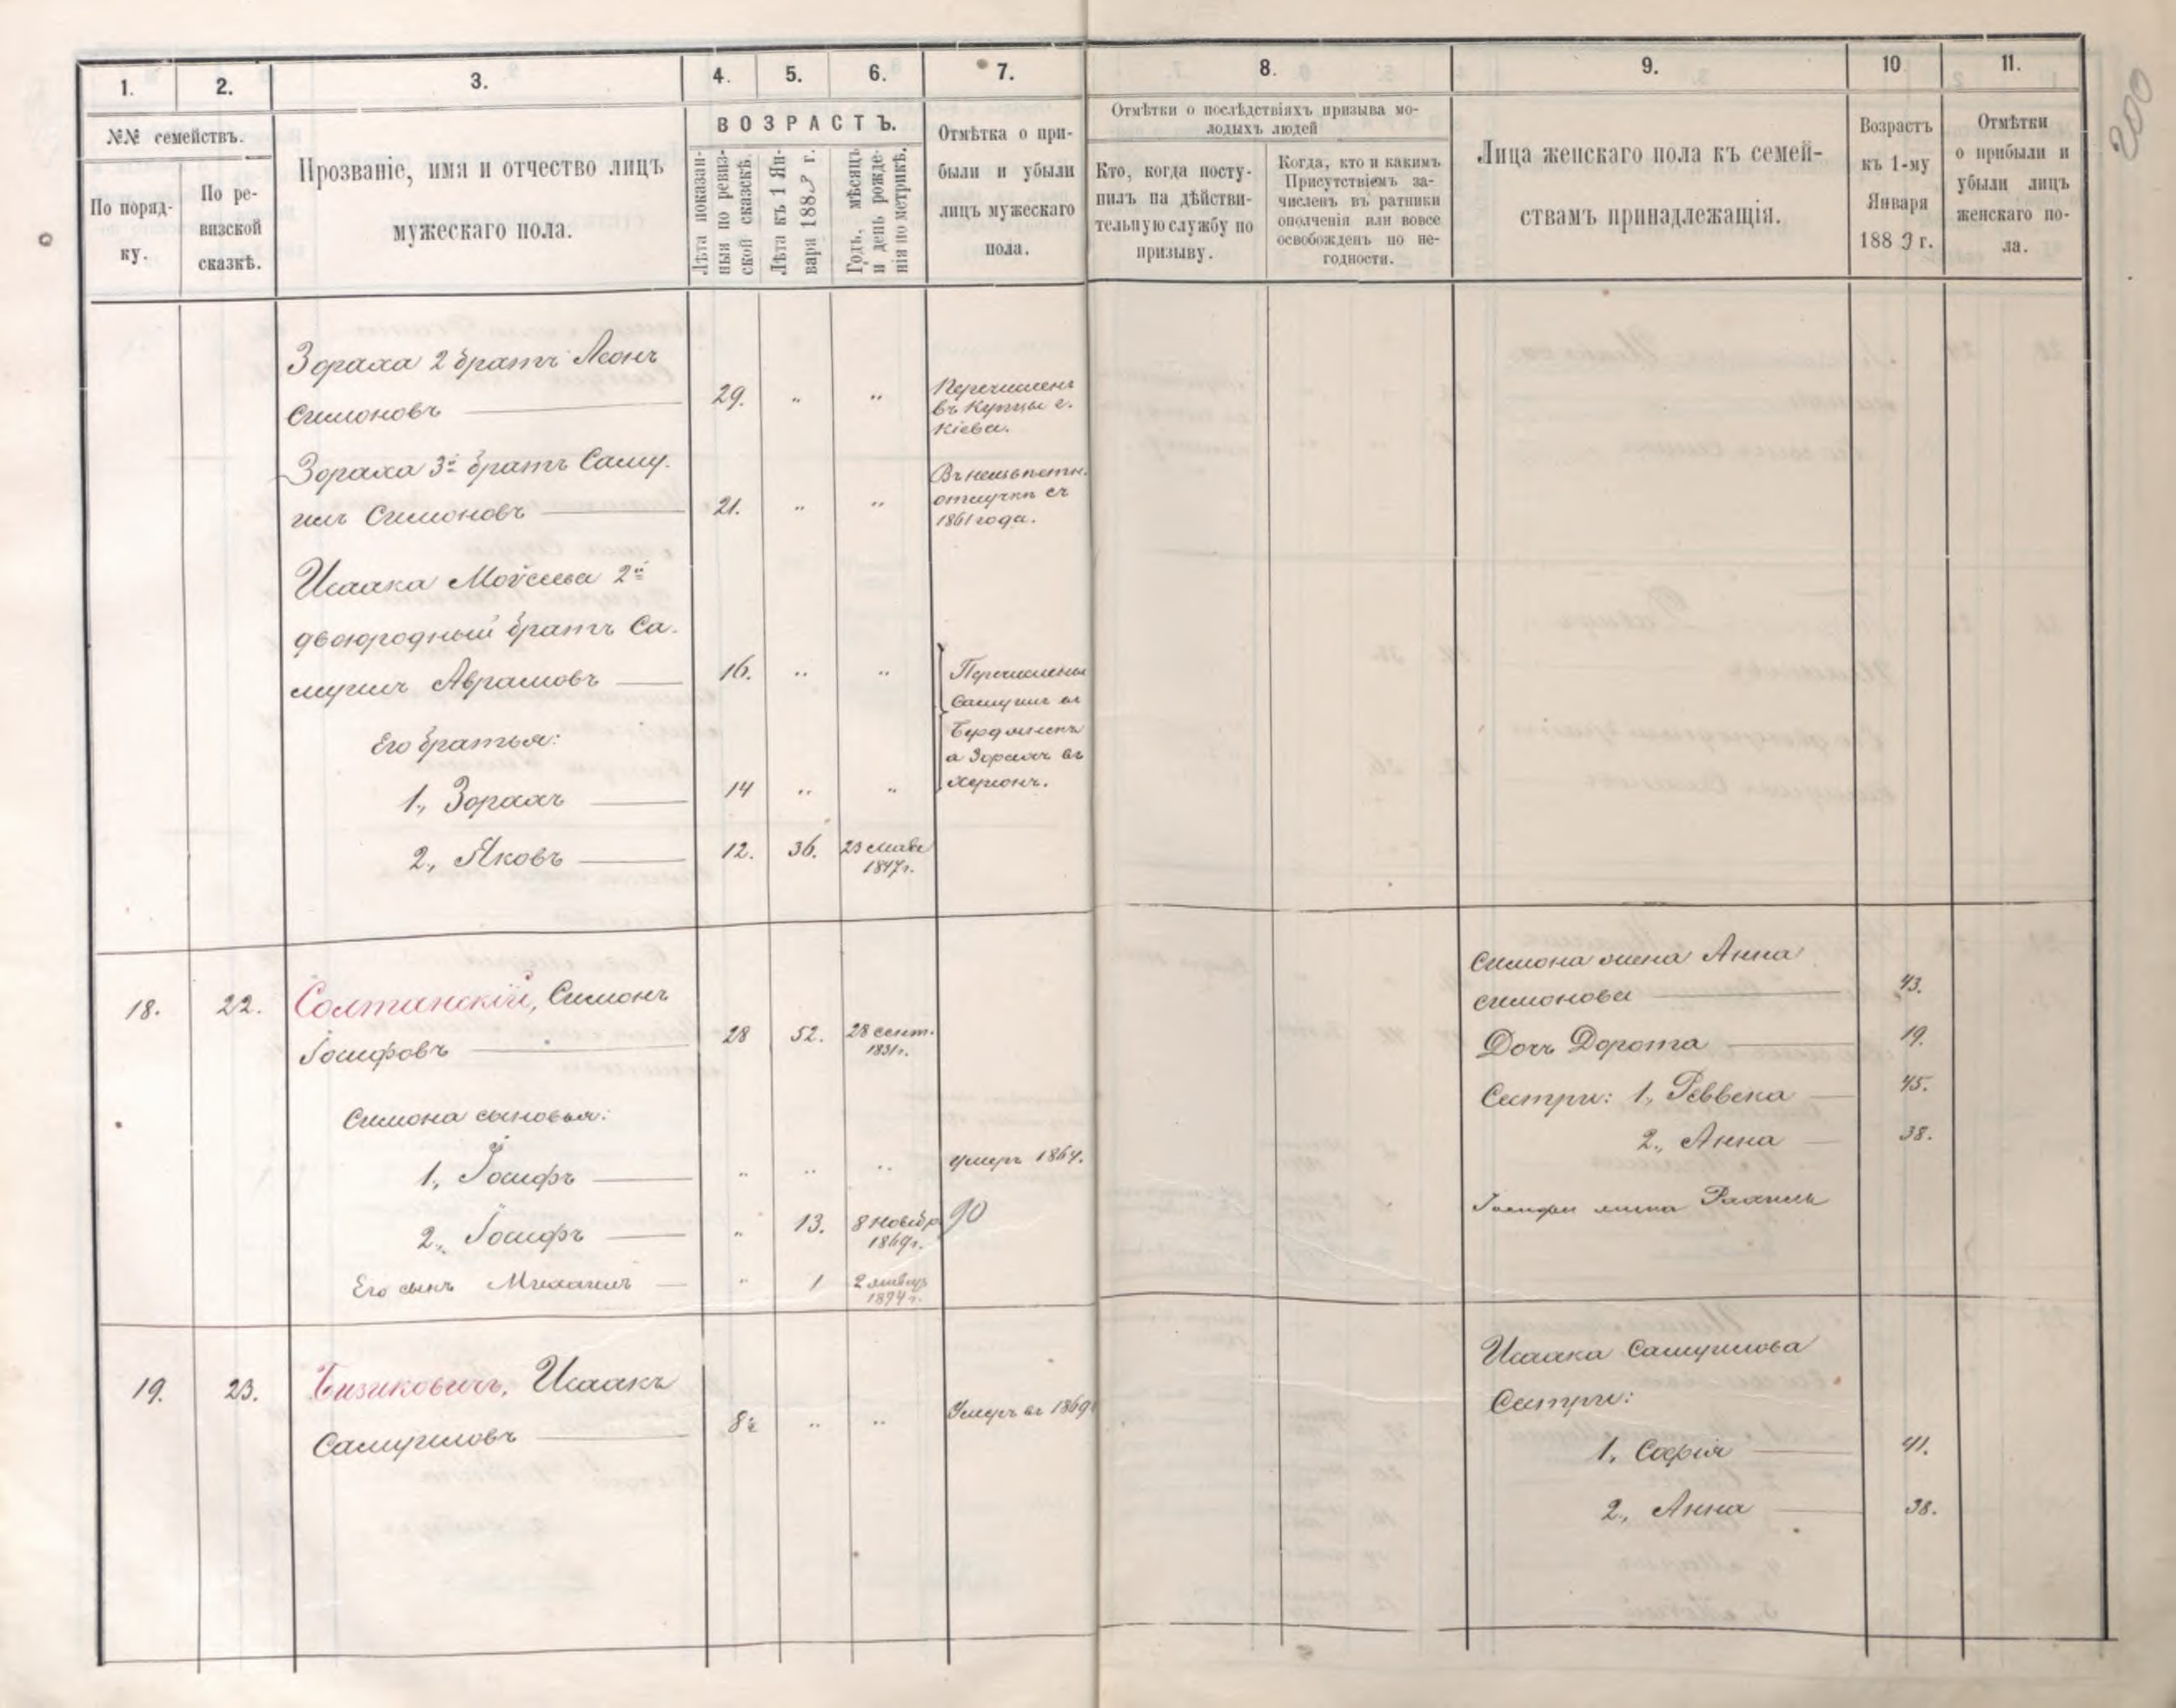 200
1.
2.
3.
4.
5.
6.
7.
8.
9.
10
11.
№№ семействъ.
По поряд-
ку.
По ре-
визской
сказкѣ.
Прозваніе, имя и отчество лицъ
мужескаго пола.
ВОЗРАСТЪ.
Лѣта показан-
ныя по ревиз-
ской сказкѣ.
Лѣта къ 1 Ян-
варя 1883 г.
Годъ, мѣсяцъ
и день рожде-
нія по метрикѣ.
Отмѣтка о при-
были и убыли
лицъ мужескаго
пола.
Отмѣтки о послѣдствіяхъ призыва мо-
лодыхъ людей
Кто, когда посту-
пилъ на дѣйстви-
тельную службу по
призыву.
Когда, кто и какимъ
Присутствіемъ за-
численъ въ ратники
ополченія или вовсе
освобожденъ по не-
годности.
Лица женскаго пола къ семей-
ствамъ принадлежащія.
Возрастъ
къ 1-му
Января
1883 г.
Отмѣтки
о прибыли и
убыли лицъ
женскаго по-
ла.
Зораха 2 братъ Леонъ
Симоновъ 29. „ „
Перечисленъ
въ Купцы г.
Кіева.
Зораха 3й братъ Саму-
илъ Симоновъ 21. „ „
Въ неизвѣстн.
отлучкѣ съ
1861 года.
Исаака Мойсеева 2й
двоюродный братъ Са-
муилъ Аврамовъ 16. „ „
Его братья:
1., Зорахъ 14 „ „
Перечислены
Самуилъ въ
Бердянскъ
а Зорахъ въ
Херсонъ.
2., Яковъ 12. 36. 23 мая
1847г.
18. 22. Солтанскій, Симонъ
Іосифовъ 28 52. 28 сент.
1831г.
Симона сыновья:
1., Іосифъ „ „ „ умеръ 1864.
2., Іосифъ „ 13. 8 ноябр 90
1869г.
Его сынъ Михаилъ „ 1 2 январ
1894г.
Симона жена Анна
Симонова 43.
Дочь Дорота 19.
Сестры: 1., Реввека 45.
2., Анна 38.
Іосифа жена Рахиль
19. 23. Бизиковичъ, Исаакъ
Самуиловъ „ „ Умеръ въ 1869
Исаака Самуилова
Сестры:
1., Софія 41.
2., Анна 38.